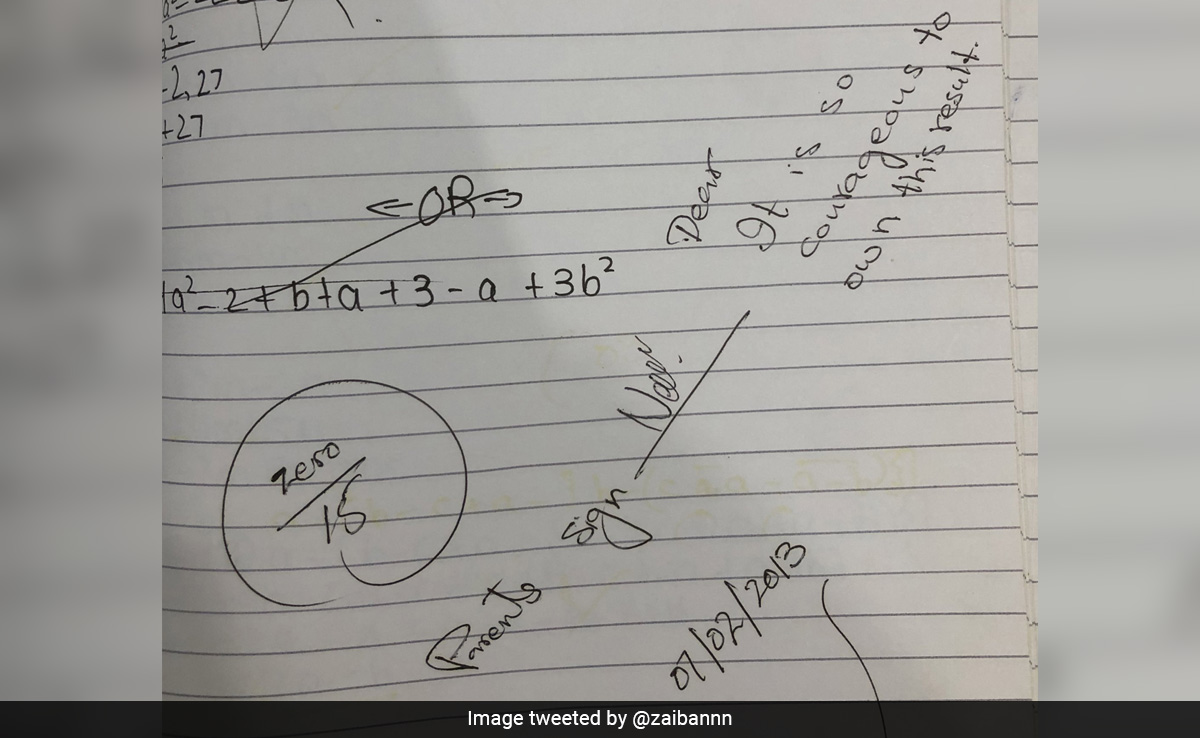 -2,27
+27
<-OR->
a²-2+b+a+3-a+3b²
Dear
It is so
courageous to
own this result.
zero
15
Parents Sign
07/02/2013
Image tweeted by @zaibannn